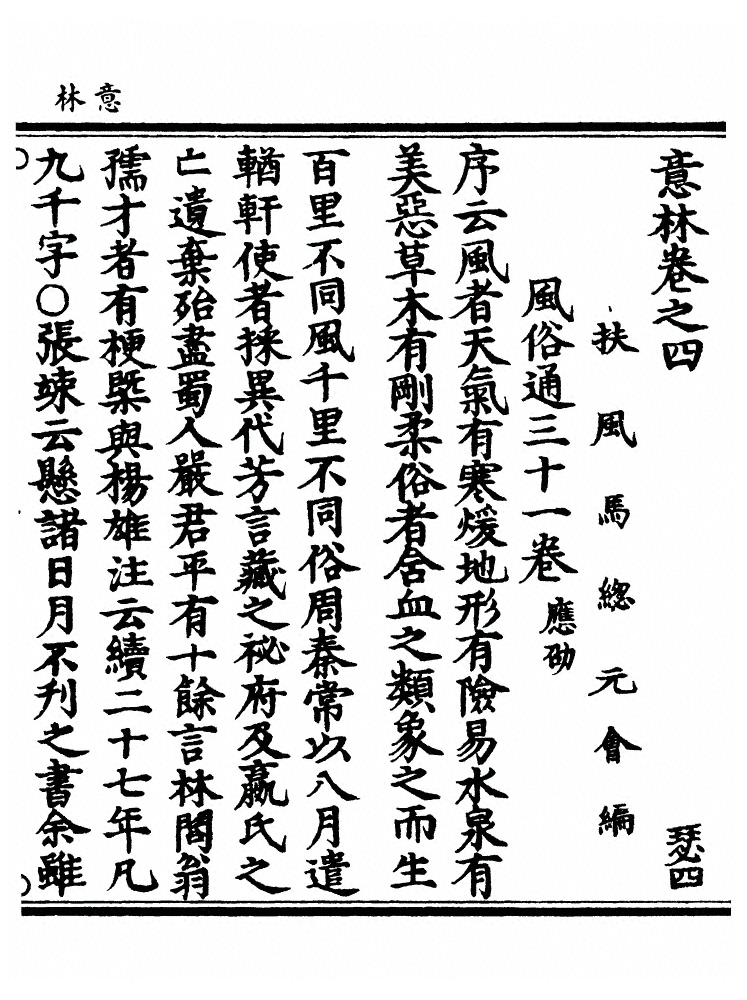 意林
意林卷之四
瑟四
扶風馬總元會編
風俗通三十一卷應劭
序云風者天氣有寒煖地形有險易水泉有
美惡草木有剛柔俗者含血之類象之而生
百里不同風千里不同俗周秦常以八月遣
輶軒使者採異代方言藏之祕府及嬴氏之
亡遺棄殆盡蜀人嚴君平有十餘言林閭翁
孺才者有梗槩與楊雄注云續二十七年凡
九千字〇張竦云懸諸日月不刋之書余雖